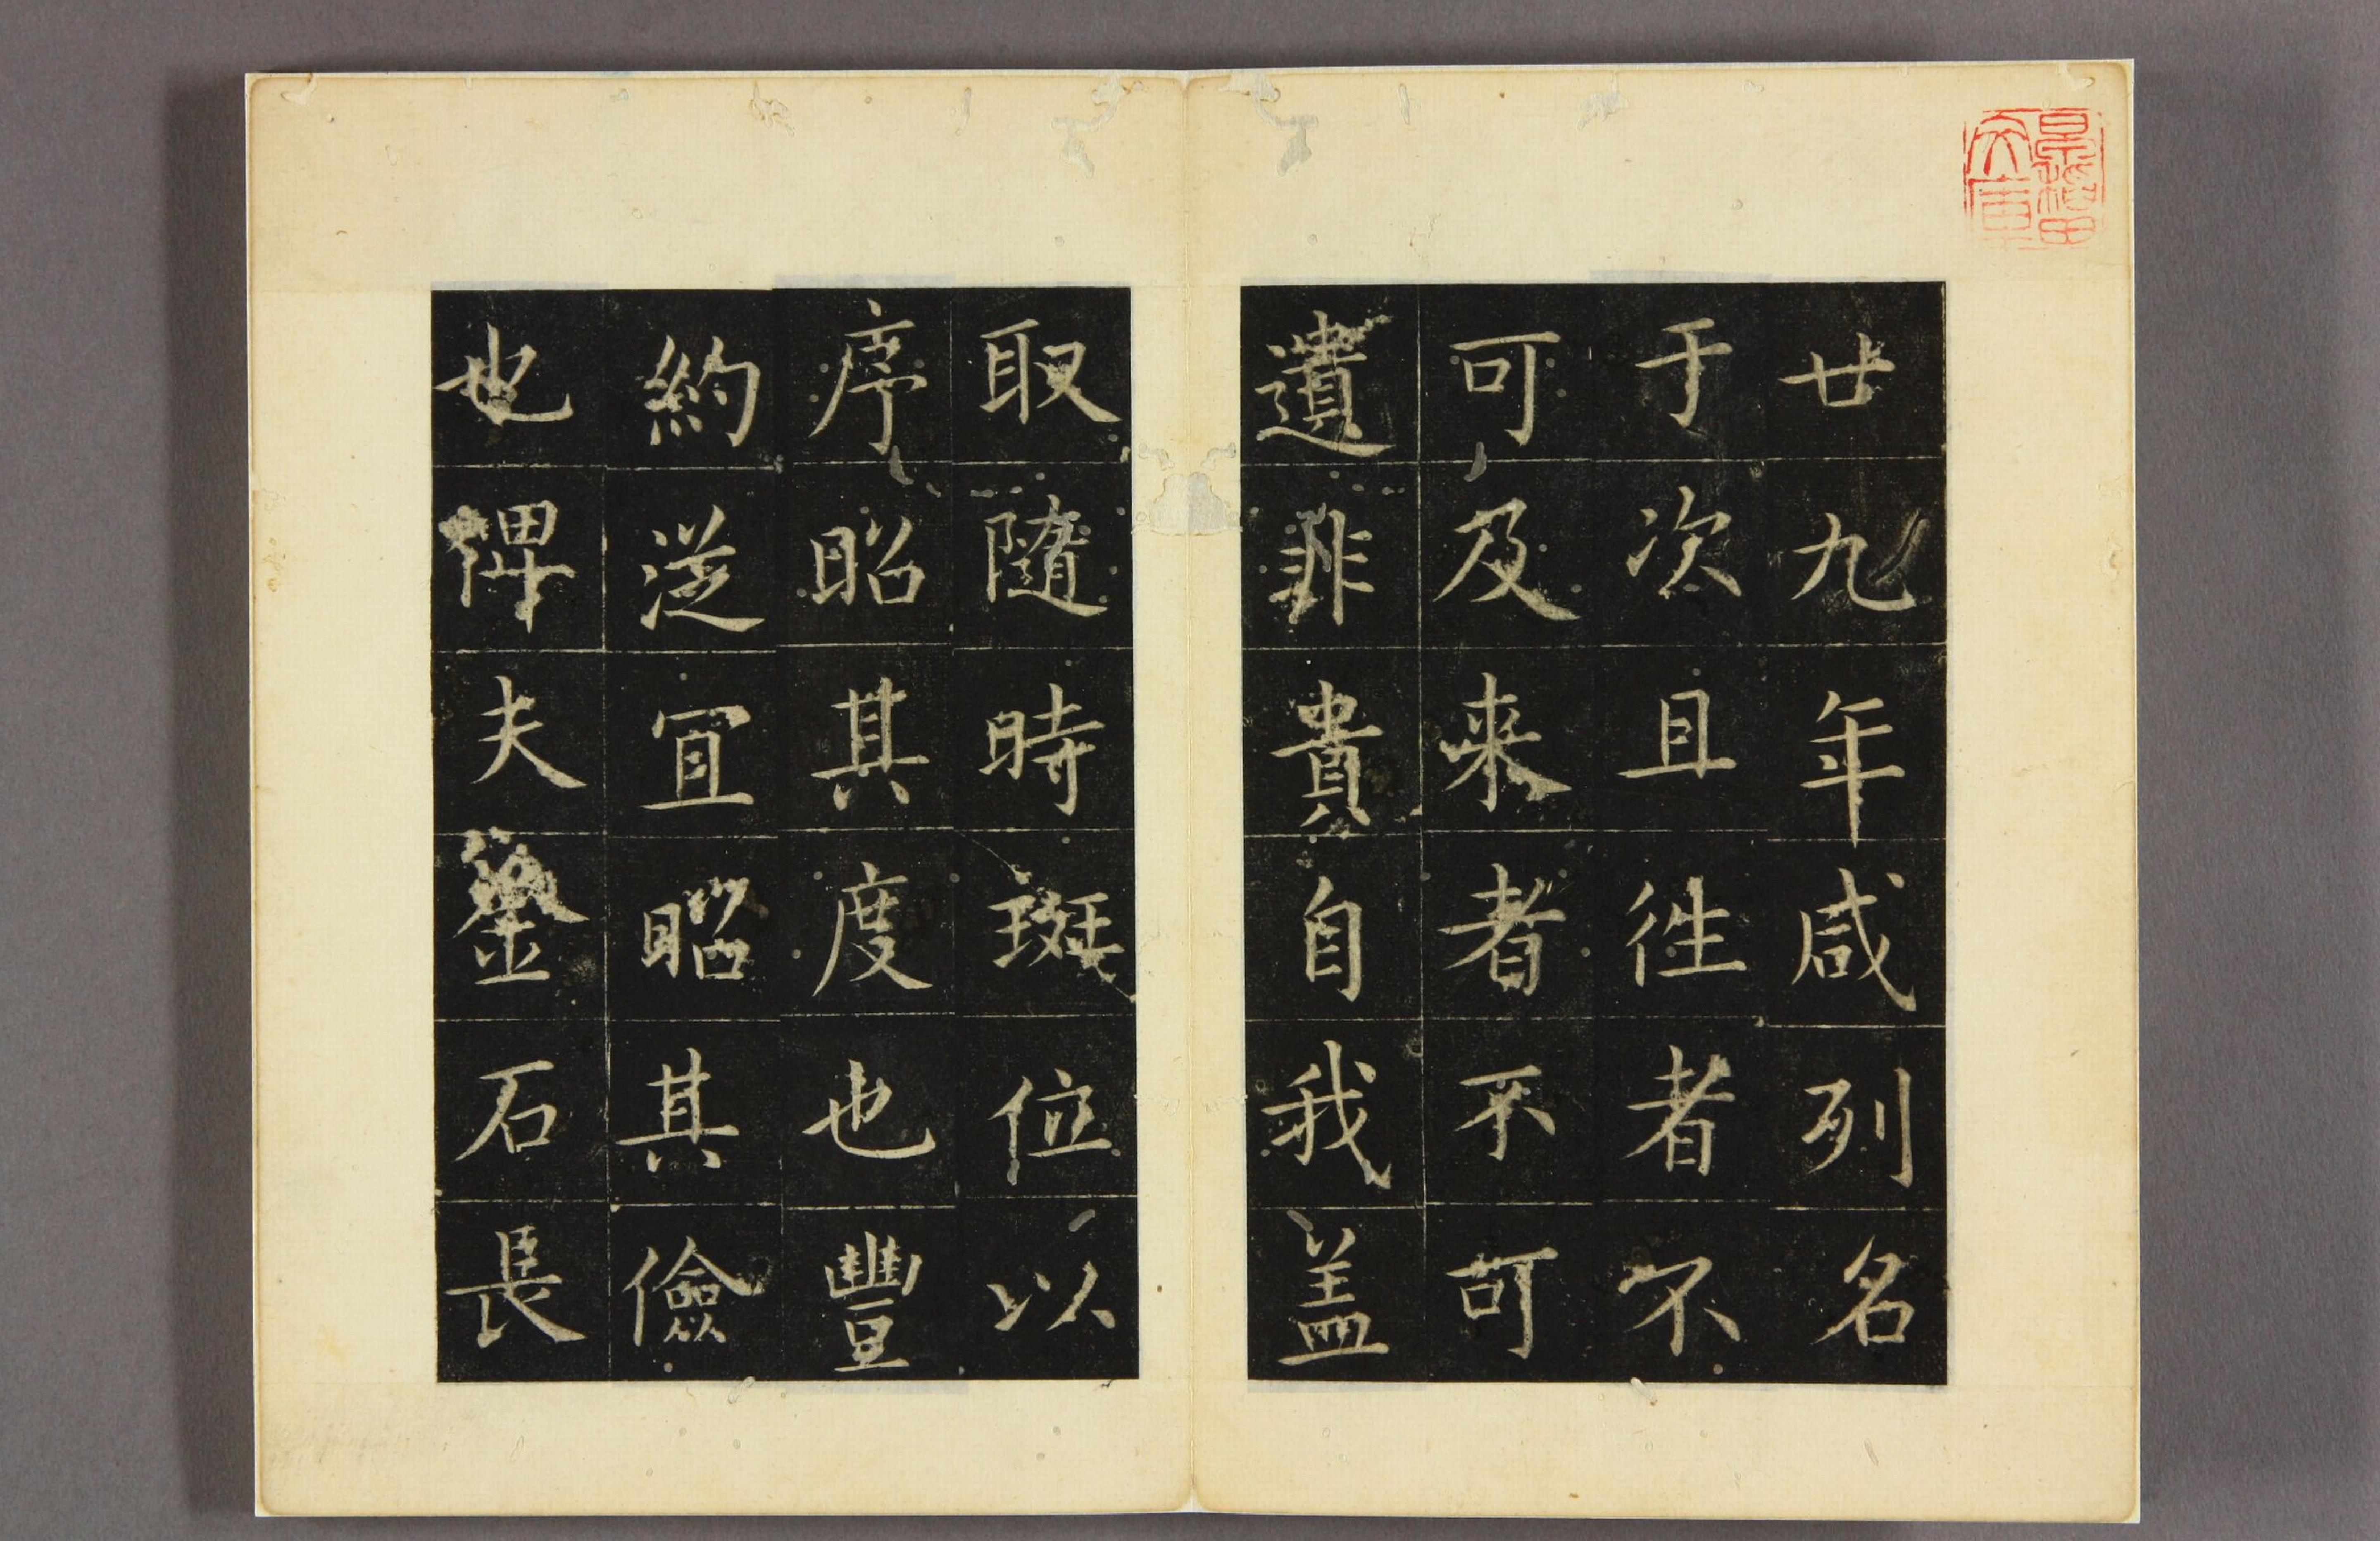 廿九年咸列名
于次且徃者不
可及来者不可
遺非貴自我盖
取隨時班位以
序昭其度也豐
約從宜昭其儉
也俾夫鑿石長